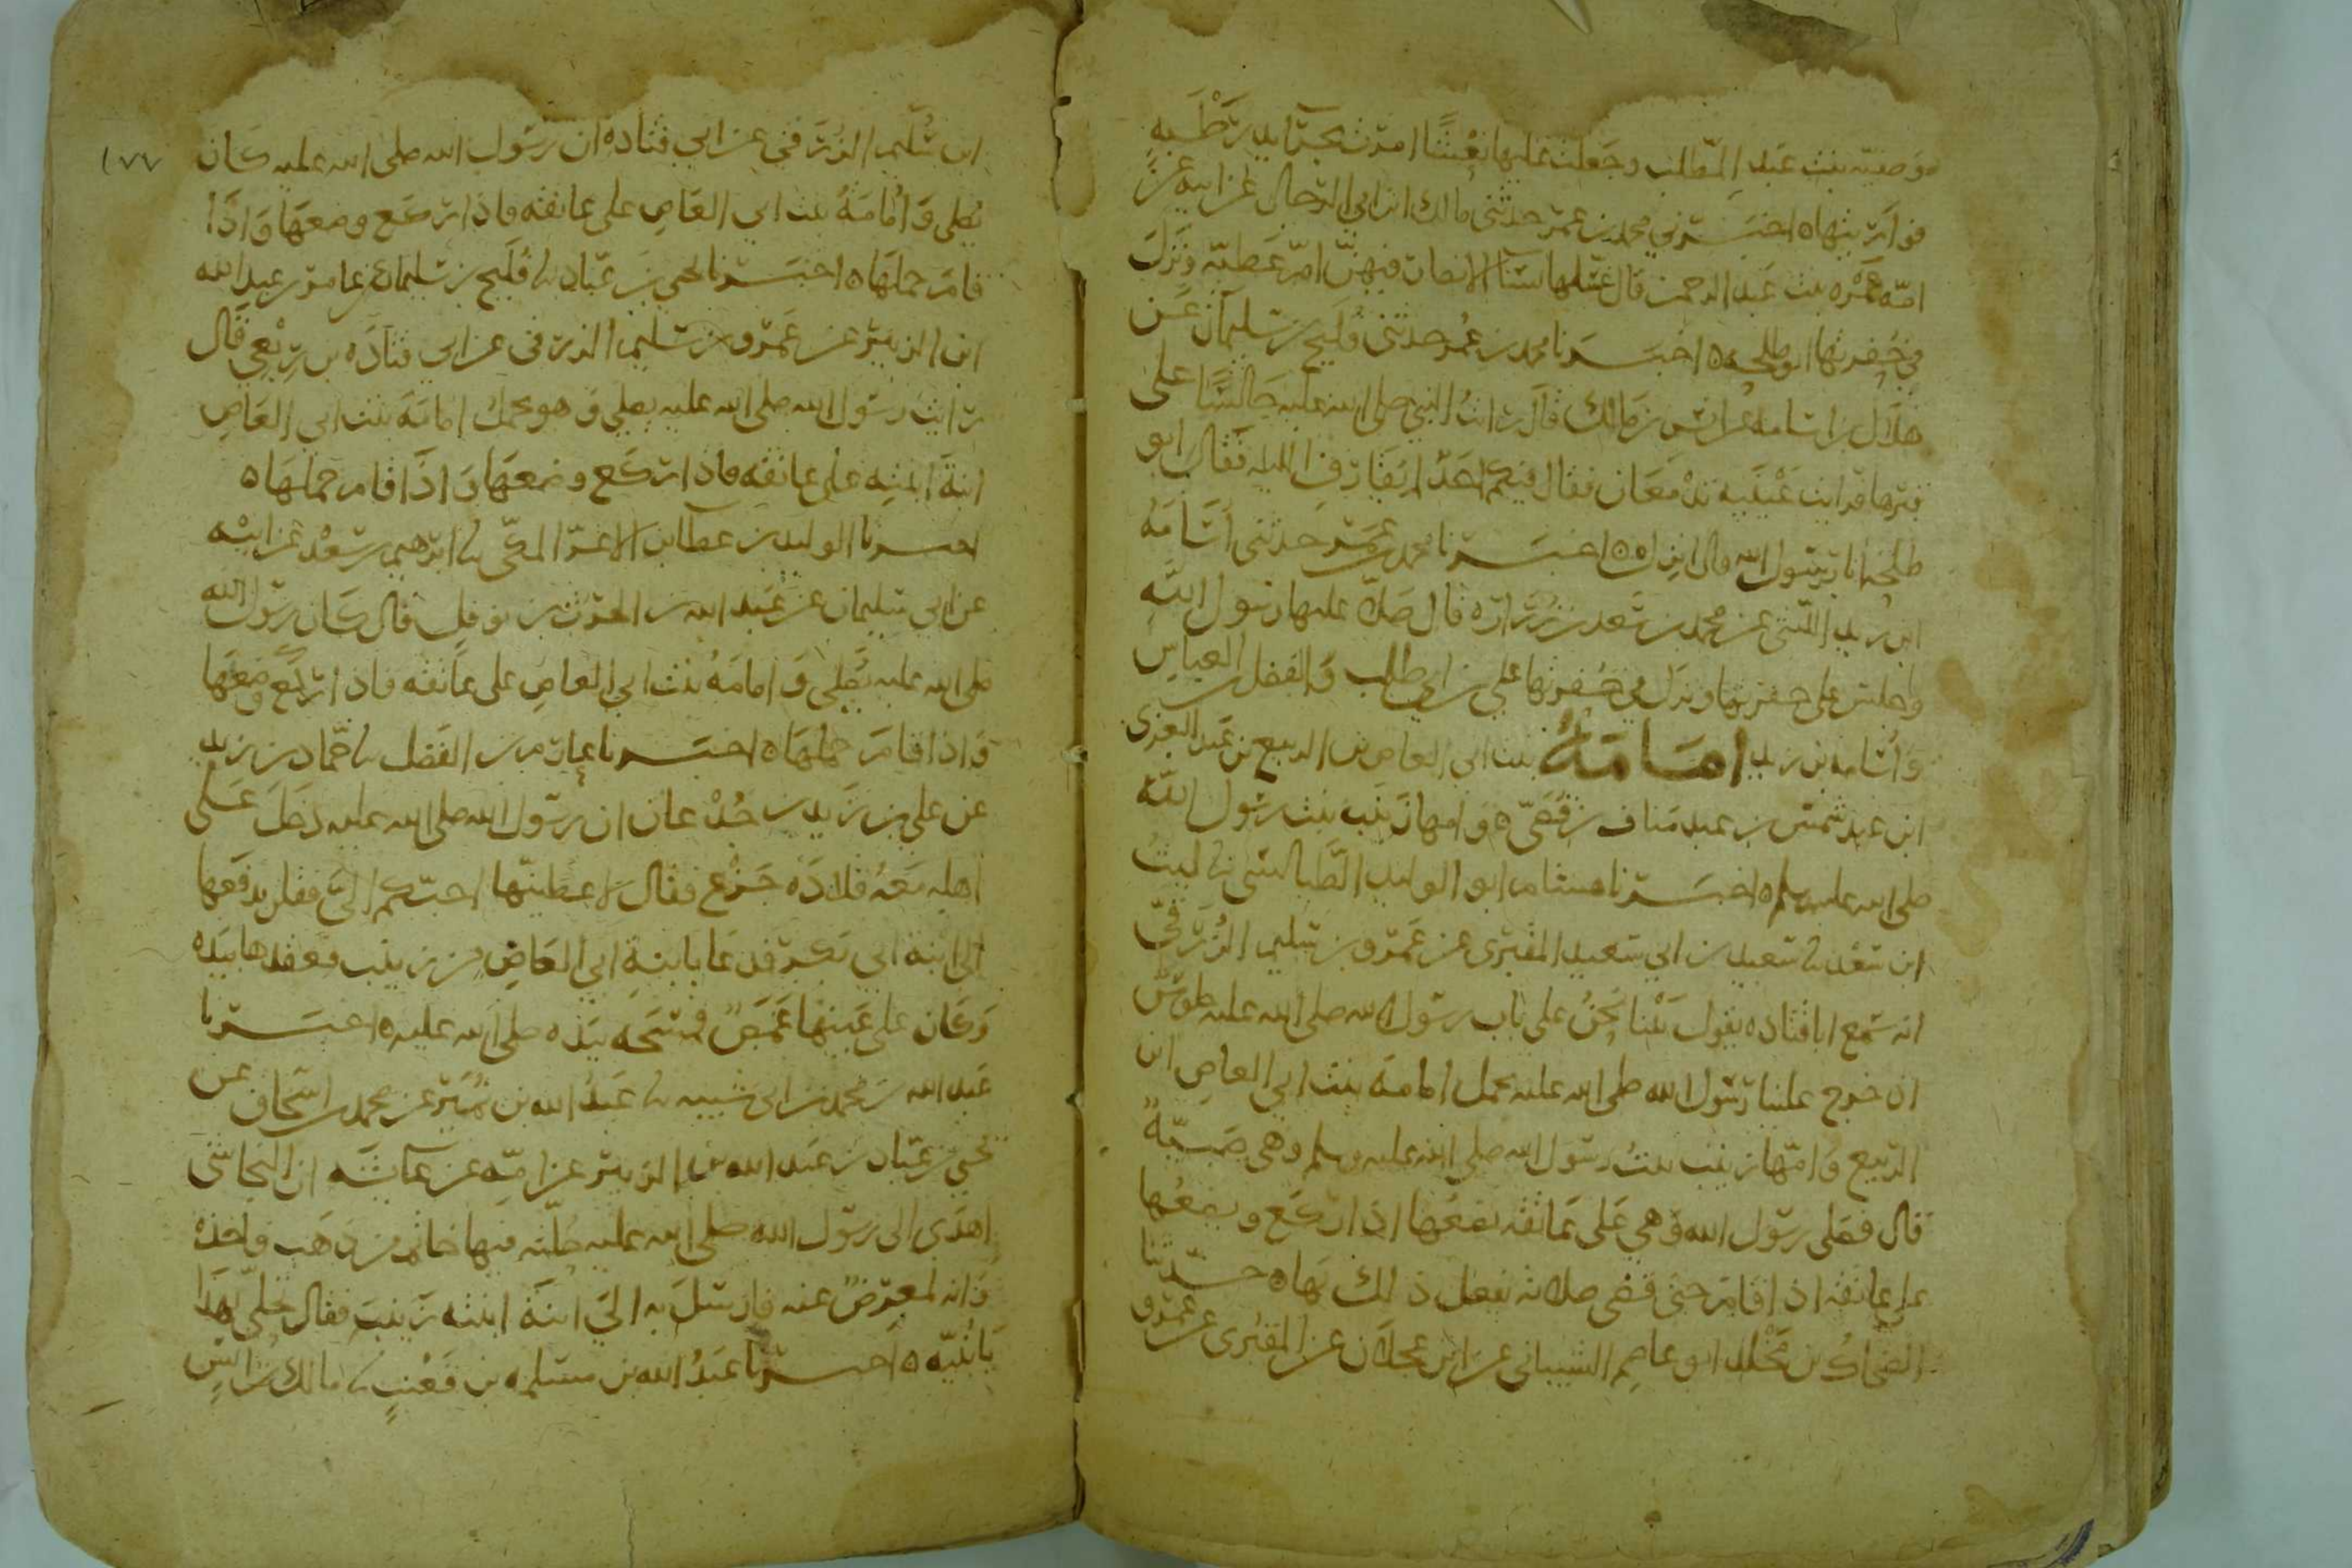 وصفيه بنت عبد المطلب وجعلت عليها نعشا امرت بجرايد رطبه
فواريتها ه اخبرني محمد بن عمر حدثني مالك ابن ابي الرجال عن ابيه عن
امه عمره بنت عبد الرحمن قال غسلها نسا الانصار فيهن ام عطيه ونزل
في حفرتها ابو طلحه ه اخبرنا محمد بن عمر حدثني فليح بن سليمان عن
هلال بن اسامه عن انس بن مالك قال رايت النبي صلى الله عليه جالسا على
قبرها فرايت عينيه تدمعان فقال فيكم احد لم يقارف الليله فقال ابو
طلحه انا يرسول الله قال انزل ه اخبرنا محمد بن عمر حدثني اسامه
ابن زيد الليثي عن محمد بن سعد بن زراره قال صلا عليها رسول الله
وجلس على حفرتها ونزل في حفرتها علي بن ابي طالب والفضل بن العباس
واسامه بن زيد امامة بنت ابي العاص بن الربيع بن عبد العزى
ابن عبد شمس بن عبد مناف بن قصي ه وامها زينب بنت رسول الله
صلى الله عليه وسلم ه اخبرنا هشام ابو الوليد الطيالسي نا ليث
ابن سعد نا سعيد بن ابي سعيد المقبرى عن عمرو بن سليم الزرقي
انه سمع ابا قتاده يقول بينا نحن على باب رسول الله صلى الله عليه جلوس
اذ خرج علينا رسول الله صلى الله عليه يحمل امامه بنت ابي العاص ابن
الربيع وامها زينب بنت رسول الله صلى الله عليه وسلم وهي صبية
قال فصلى رسول الله وهي على عاتقه يضعها اذا ركع ويضعها
على عاتقه اذا قام حتى قضى صلاته يفعل ذلك بها ه حدثنا
الضحاك بن مخلد ابو عاصم الشيباني عن ابن عجلان عن المقبرى عن عمرو
ابن سليم الزرقي عن ابي قتاده ان رسول الله صلى الله عليه كان
١٧٧
يصلى وامامة بنت ابي العاص على عاتقه فاذا ركع وضعها واذا
قام حملها ه اخبرنا يحيى بن عباد نا فليح بن سليمان عن عامر بن عبد الله
ابن الزبير عن عمرو بن سليم الزرقى عن ابي قتاده بن ربعي قال
رايت رسول الله صلى الله عليه يصلي وهو يحمل امامه بنت ابي العاص
ابنة ابنته على عاتقه فاذا ركع وضعها واذا قام حملها ه
اخبرنا الوليد بن عطا بن الاغر المكي نا ابرهيم بن سعد عن ابيه
عن ابي سليمان عن عبد الله بن الحرث بن نوفل قال كان رسول الله
صلى الله عليه يصلي وامامة بنت ابي العاص على عاتقه فاذا ركع وضعها
واذا قام حملها ه اخبرنا عارم بن الفضل نا حماد بن زيد
عن علي بن زيد بن جدعان ان رسول الله صلى الله عليه دخل على
اهله معه قلاده جزع فقال لاعطينها احبكم الي فقلن يدفعها
الى ابنة ابي بكر فدعا بابنة ابي العاص من زينب فعقدها بيده
وكان على عينها غمص فمسحه بيده صلى الله عليه ه اخبرنا
عبد الله بن محمد بن ابي شيبه نا عبد الله بن نمير عن محمد بن اسحاق عن
يحيى بن عباد بن عبد الله بن الزبير عن امه عن عائشه ان النجاشي
اهدى الى رسول الله صلى الله عليه حلية فيها خاتم من ذهب فاخذه
وانه لمعرض عنه فارسل به الي ابنة ابنته زينب فقال تحلي بهذا
يا بنيه ه اخبرنا عبد الله بن مسلمه بن قعنب نا مالك بن انس